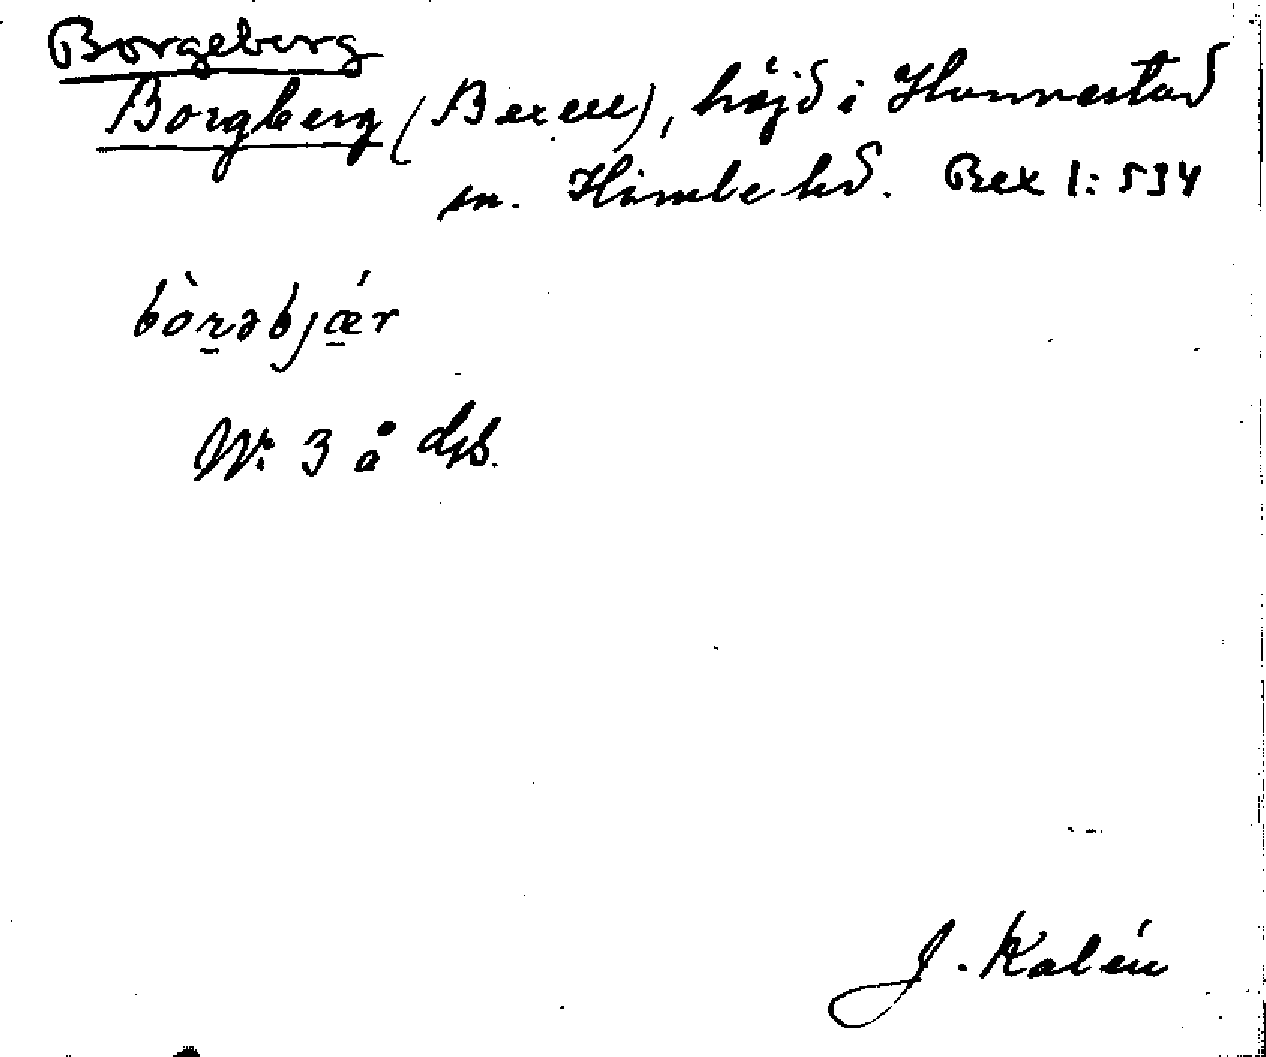 Borgeberg
Borgberg (Bexell), höjd i Hunnestad
sn. Himle hd. Bex 1:534
bòrəbjǽr
Nr 3 å
J. Kalén